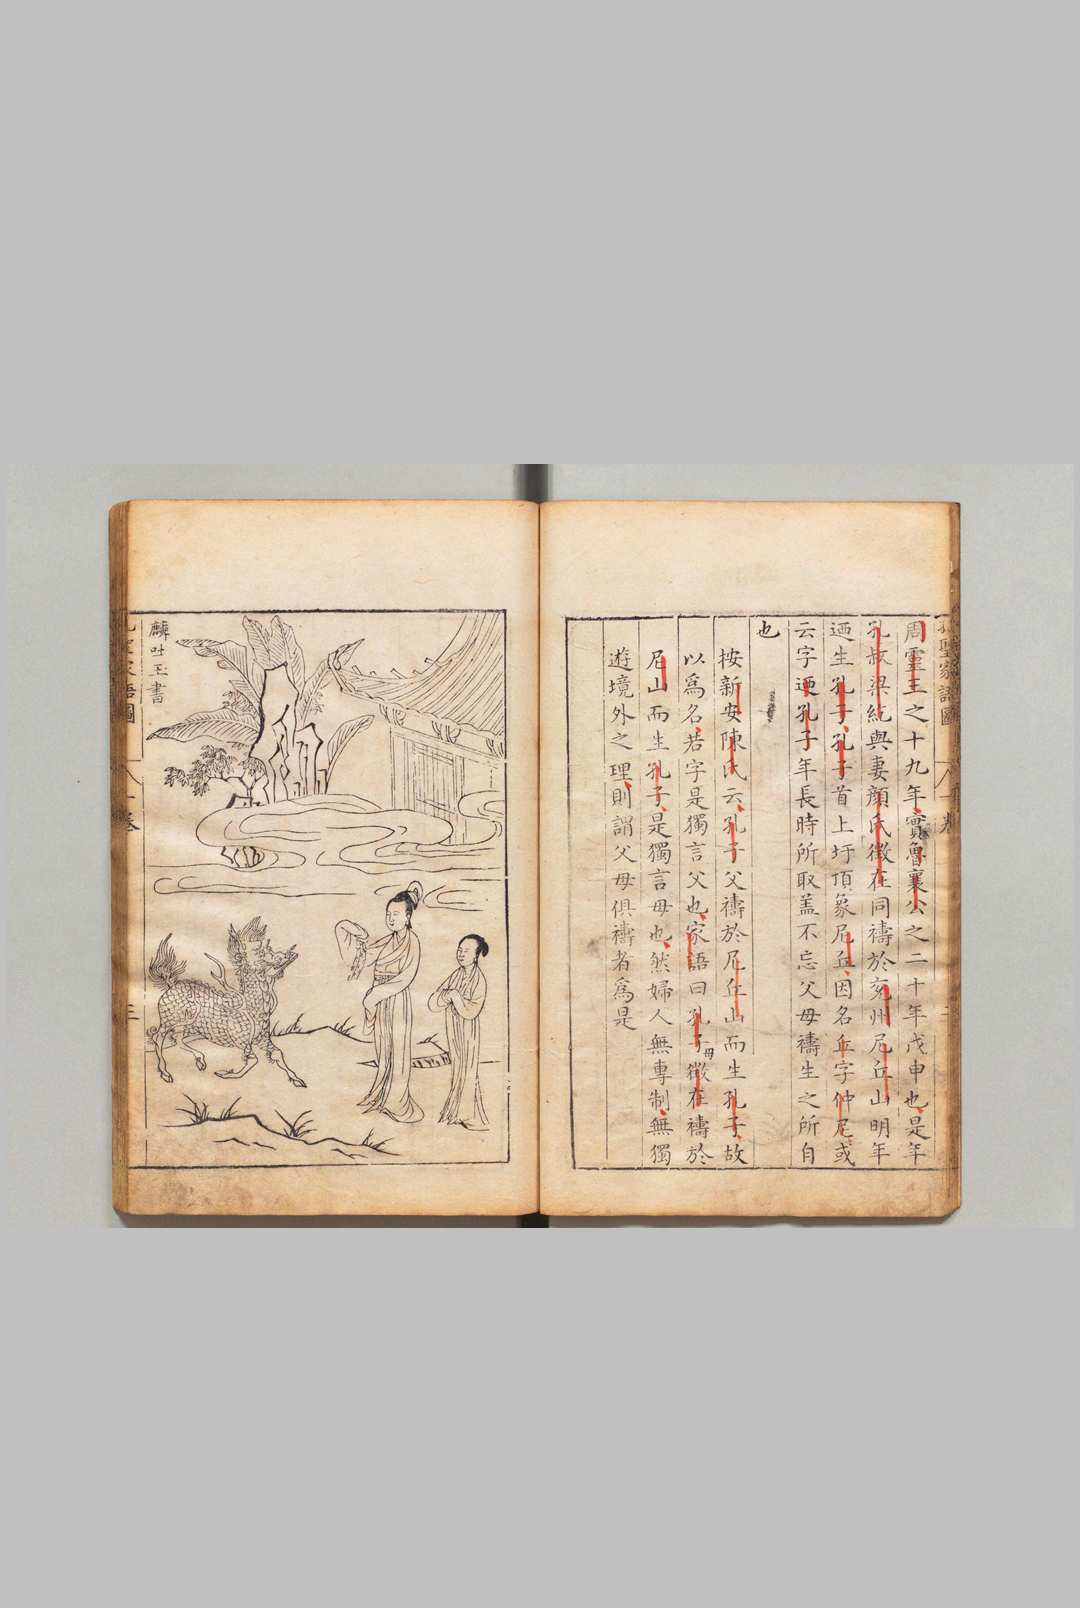 周靈王之十九年實魯襄公之二十年戊申也是年
孔叔梁紇與妻顏氏徵在同禱於兗州尼丘山明年
迺生孔子孔子首上圩頂象尼丘因名丘字仲尼或
云字迺孔子年長時所取盖不忘父母禱生之所自
也
按新安陳氏云孔子父禱於尼丘山而生孔子故
以為名若字是獨言父也家語曰孔子母徵在禱於
尼山而生孔子是獨言母也然婦人無專制無獨
遊境外之理則謂父母俱禱者為是
麟吐玉書